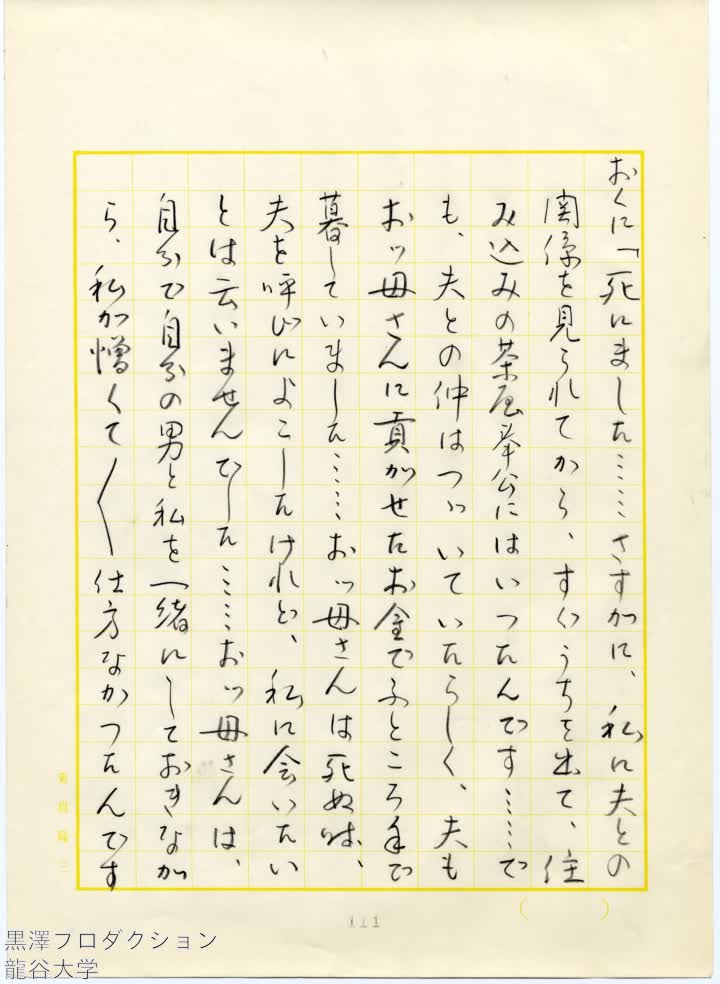 おくに「死にました……さすがに、私に夫との
関係を見られてから、すぐうちを出て、住
み込みの茶屋奉公にはいつたんです……で
も、夫との仲はつゞいていたらしく、夫も
おッ母さんに貢がせたお金でふところ手で
暮していました……おッ母さんは死ぬ時、
夫を呼びによこしたけれど、私に会いたい
とは云いませんでした……おッ母さんは、
自分で自分の男と私を一緒にしておきなが
ら、私が憎くて〱仕方なかつたんです
111
黒澤プロダクション
龍谷大学